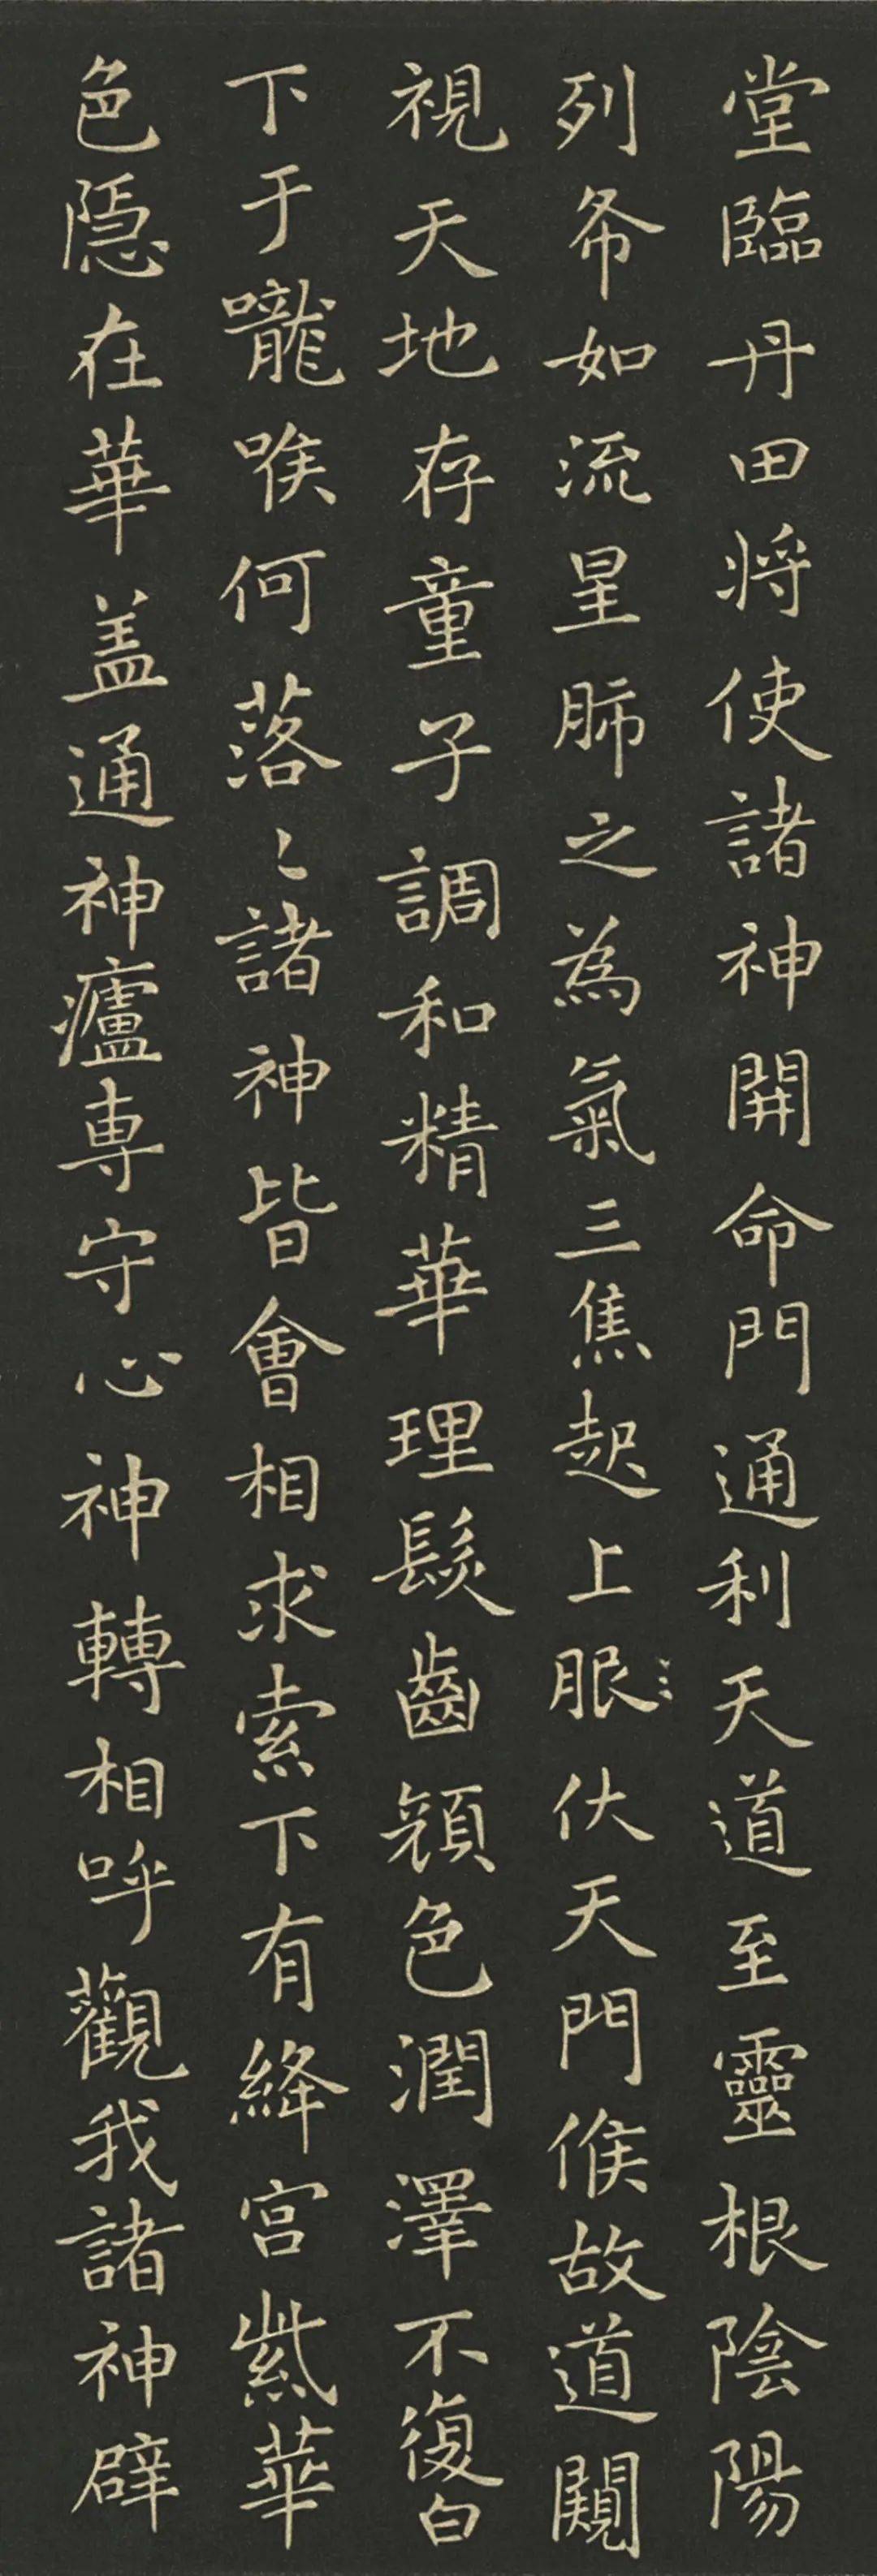 堂臨丹田将使諸神開命門通利天道至靈根陰陽
列布如流星肺之為氣三焦起上服伏天門候故道闚
視天地存童子調和精華理髮齒顏色潤澤不復白
下于嚨喉何落〻諸神皆會相求索下有絳宮紫華
色隱在華盖通神廬専守心神轉相呼觀我諸神辟